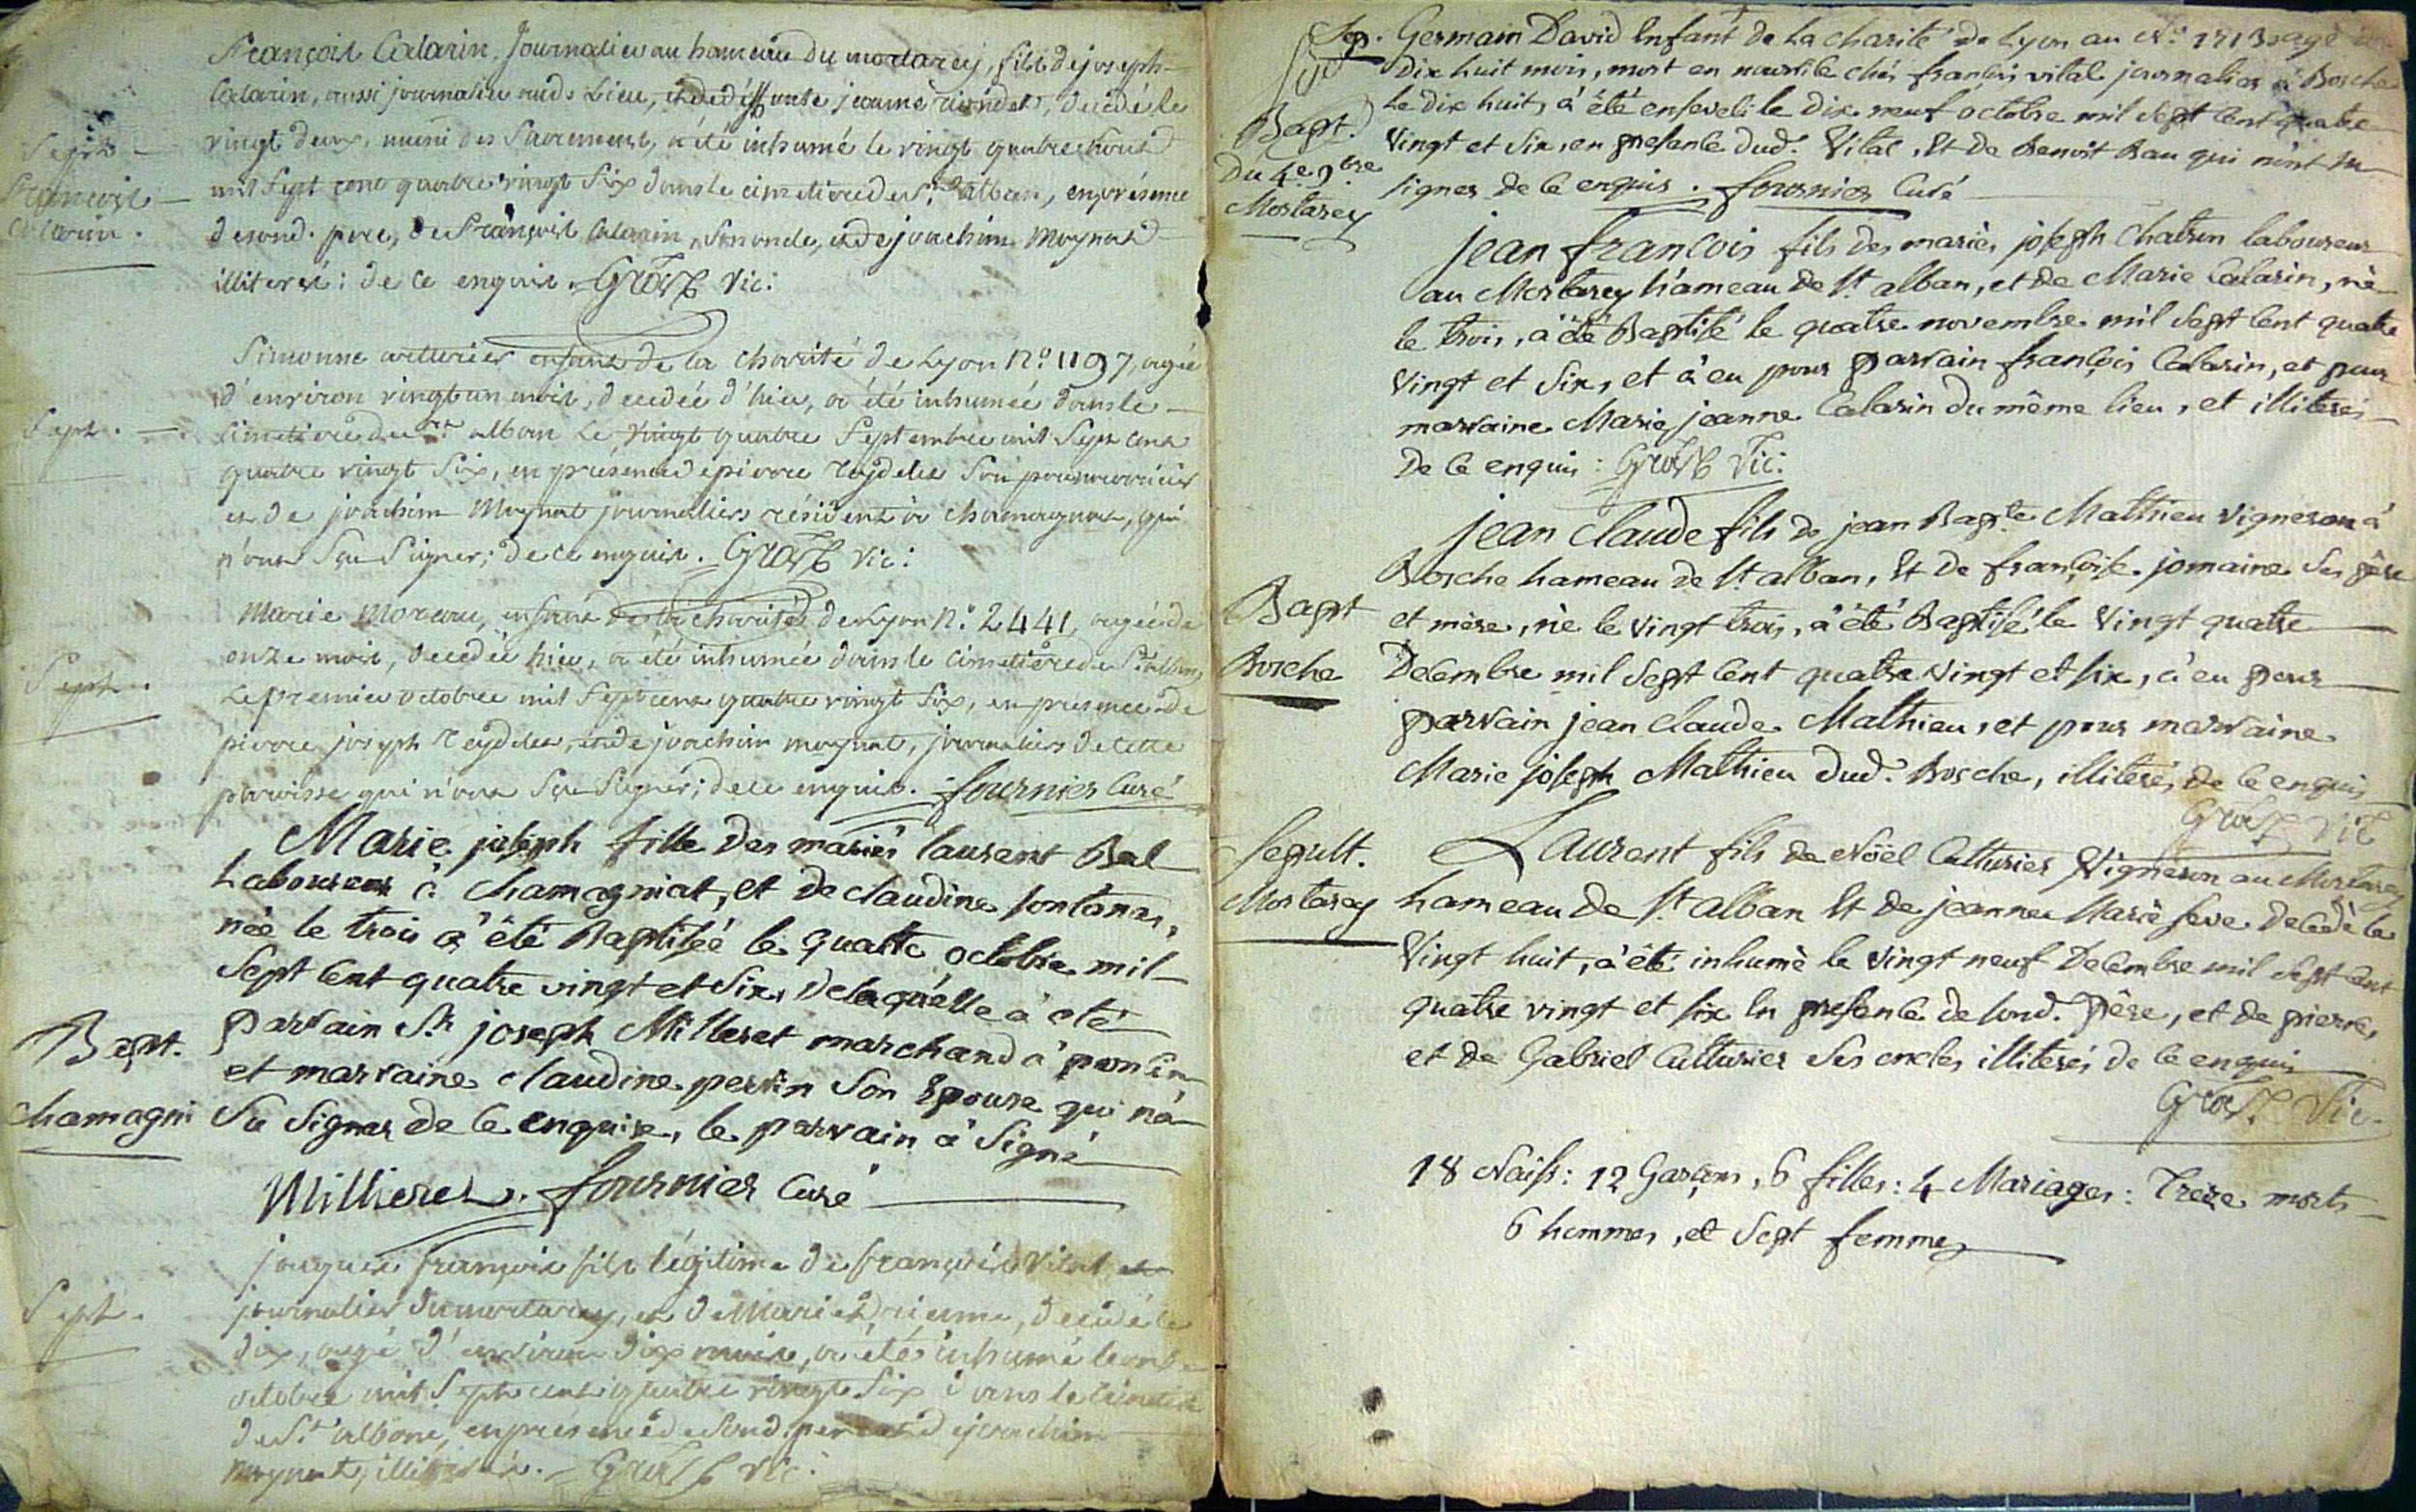 François Calarin, Journalier au hameau du mortarey, fils de joseph
Calarin, aussi journalier aud. Lieu, et de déffunte jeanne, décédé le
vingt deux, muni des Sacrements, a été inhumé le vingt quatre
mil Sept cent quatre vingt Six dans le cimetiere de St. alban, en présence
de sond. pere, de François Calarin, Son oncle, et de joachim Moynat
illiterés: de ce enquis. Grosse Vic:
Sept.
François
Calarin.
Simonne cutturier enfant de la Charité de Lyon N.o 1197, agée
d'environ vingt un mois, décédée d'hier, a été inhumée dans le
cimetiere de St. alban Le vingt quatre Septembre mil Sept cent
quatre vingt Six, en présence de pierre reydelet Son pere nourricier
et de joachim Moynat journaliers résident à chamagnat, qui
n'ont Sçu Signer; de ce enquis. Grosse Vic:
Sept.
Marie Moreau, enfant de la charité de Lyon N.o 2441, agée de
onze mois, décédée hier, a été inhumée dans le cimetiere de St. alban,
Le premier octobre mil Sept cent quatre vingt Six, en présence de
pierre joseph reydelet, et de joachim moynat, journaliers de cette
paroisse qui n'ont Sçu Signer; de ce enquis. fournier Curé
Sept.
Marie joseph fille des mariés laurent Bal
Laboureur à Chamagniat, et de claudine fontanas,
née le trois a été Baptisée le quatre octobre mil
Sept Cent quatre vingt et Six, de laquelle à été
parrain Sr. joseph Milleret marchand à poncin
et marraine claudine perrin Son Epouse qui n'à
Su Signer de Ce enquise, le parrain à Signé
Millieret. fournier Curé
Bapt.
Chamagni
jaques françois fils légitime de françois Vital
journalier du mortarey, et de Marie, décédé le
dix, agé d'environ dix mois, a été inhumé le onze
octobre mil Sept cent quatre vingt Six dans le cimetiere
de St. albane, en présence de Sond. pere et de joachim
moynat, illiterés. Grosse Vic:
Sept.
Sep. Germain David Enfant de La Charité de Lyon au N.o agé
Dix huit mois, mort en nourrice chés françois vital journalier à Bosche
Le Dix huit, à été enseveli le Dix neuf octobre mil Sept Cent quatre
Vingt et Six, en presence dud. Vital, Et de Benoit Bau qui n'ont Su
signer de Ce enquis. fournier Curé
Bapt.
Du 4e 9bre
Mortarey
jean françois fils des mariés joseph Chatron laboureur
au Mortarey hameau de St. alban, et de Marie Calarin, né
le trois, à été Baptisé le quatre novembre mil Sept Cent quatre
Vingt et Six, et à eu pour parrain françois Calarin, et pour
marraine Marie jeanne Calarin du même lieu, et illiterés
De Ce enquis: Grosse Vic:
jean Claude fils de jean Bapte. Mathieu Vigneron à
Bosche hameau de St. alban, Et De françoise jomaine Ses père
et mère, né le Vingt trois, à été Baptisé le Vingt quatre
Decembre mil Sept Cent quatre Vingt et Six, à eu pour
parrain jean Claude Mathieu, et pour marraine
Marie joseph Mathieu dud. Bosche, illiterés, de Ce enquis
Grosse Vic
Bapt
Bosche
Laurent fils de Nöel Cutturier Vigneron au Mortarey
hameau de St. alban Et De jeanne Marie Seve decedé le
Vingt huit, à été inhumé le Vingt neuf Decembre mil Sept Cent
quatre vingt et Six En presence de Sond. Père, et de pierre,
et de Gabriel Cutturier Ses oncles illiterés de Ce enquis
Grosse Vic.
Sepult.
Mortarey
18 Naiss: 12 Garçons, 6 filles: 4 Mariages: Treze morts
6 hommes, et Sept femmes